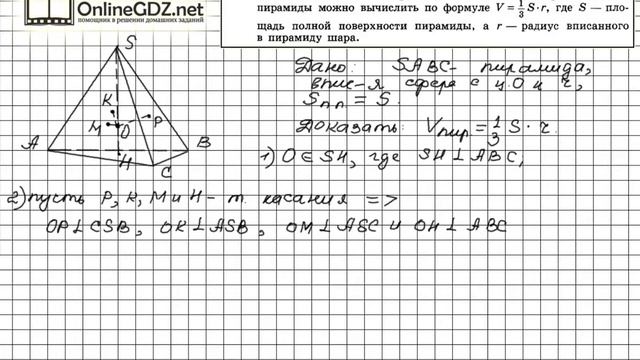 OnlineGDZ.net
помощник в решении домашних заданий
пирамиды можно вычислить по формуле V = 1/3 S · r, где S — пло-
щадь полной поверхности пирамиды, а r — радиус вписанного
в пирамиду шара.
Дано: SABC - пирамида,
впис-я сфера с ц. O и r,
Sп.п. = S.
Доказать: Vпир. = 1/3 S · r.
S
K
M O P
A B
H
C
1) O ∈ SH, где SH ⊥ ABC,
2) пусть P, K, M и H - т. касания =>
OP ⊥ CSB, OK ⊥ ASB, OM ⊥ ASC и OH ⊥ ABC